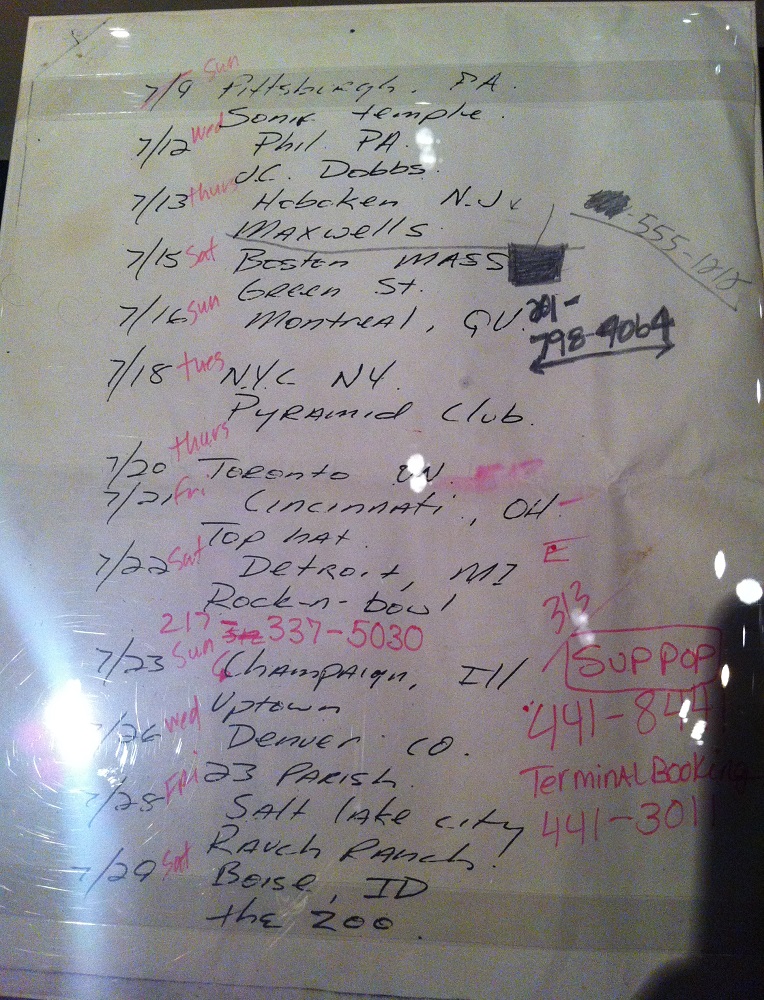 7/9 Sun Pittsburgh, PA.
Sonic temple.
7/12 Wed Phil PA.
J.C. Dobbs.
7/13 thurs Hoboken N.J.
Maxwells
555-1212
7/15 Sat Boston MASS
Green St.
7/16 Sun Montreal, QU.
201-
798-4064
7/18 tues N.Y.C NY.
Pyramid Club.
7/20 thurs Toronto ON.
7/21 Fri Cincinnati, OH
Top hat.
7/22 Sat Detroit, MI
Rock-n-bowl
313
217-337-5030
7/23 Sun Champaign, Ill
SUPPOP
Uptown
441-844
7/26 wed Denver CO.
23 PARISH.
Terminal Booking
7/28 FRi Salt lake city
441-301
Rauch Ranch.
7/29 Sat Boise, ID
the Zoo.